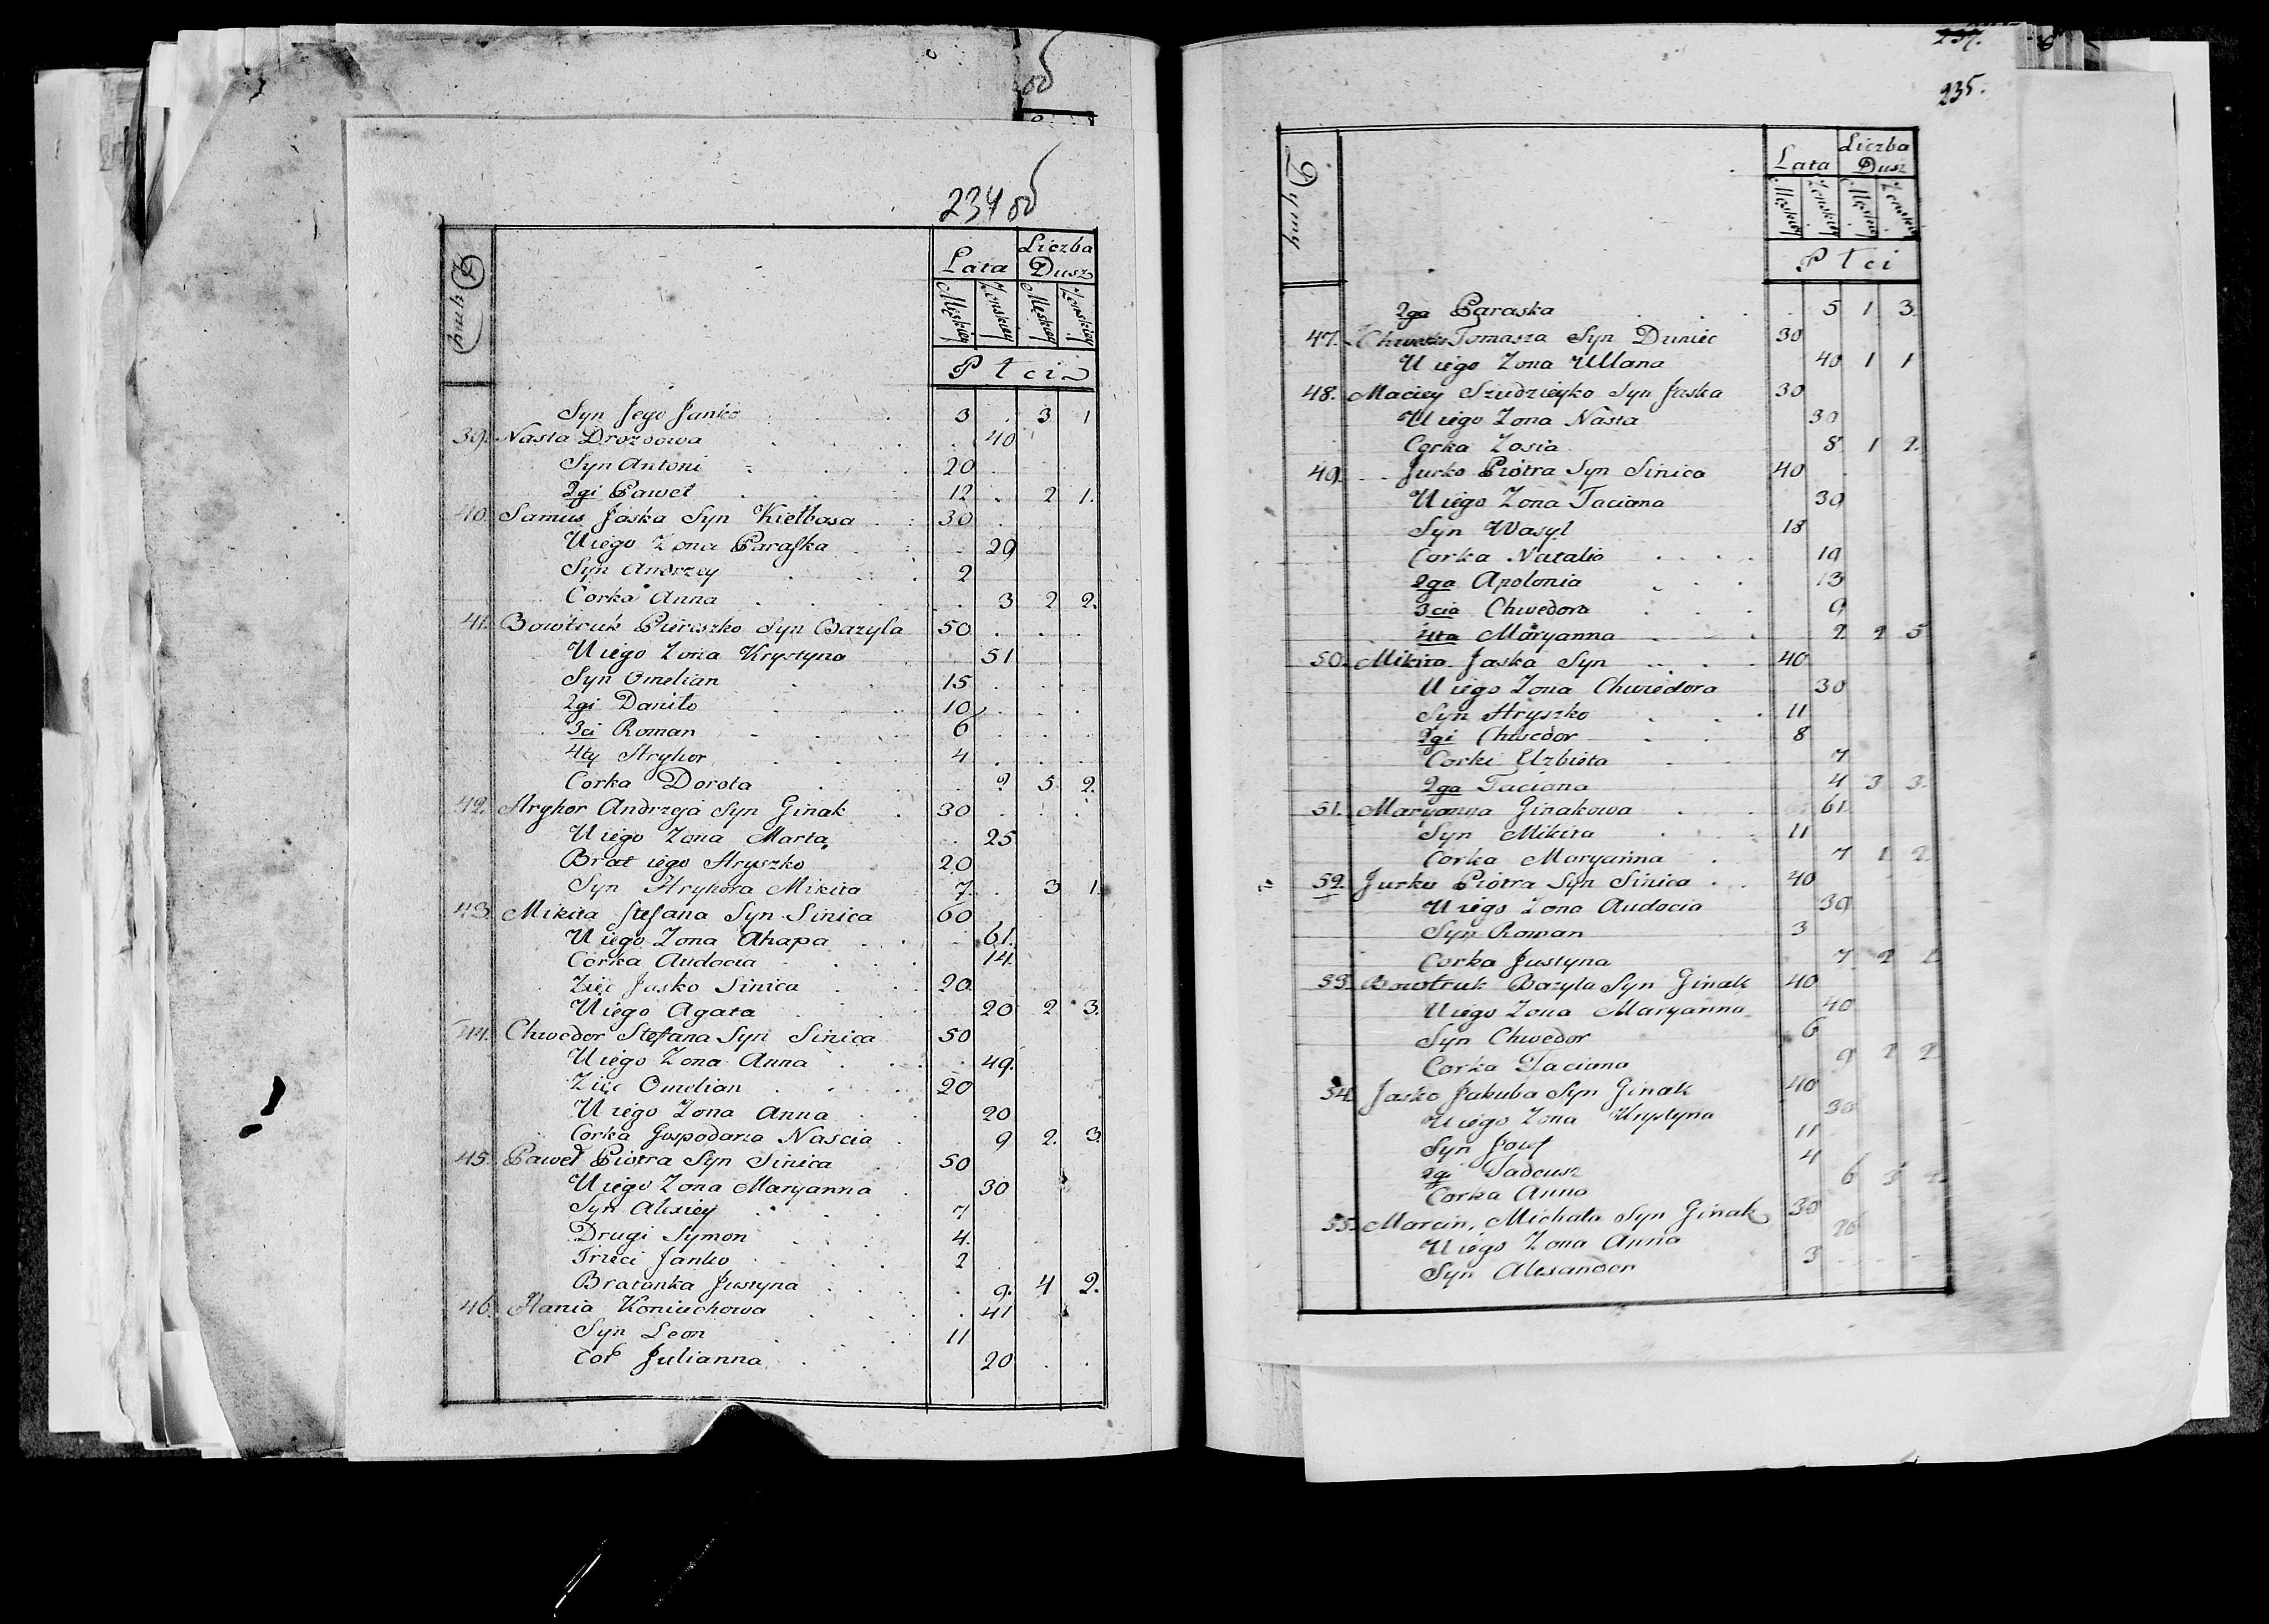 об
234 об
Dymy Lata Liczba Dusz
Męskiey Zenskiey Męskiey Zenskiey
Ptci
Syn Jego Janko 3 3 1
39. Nasta Drozdowa 40
Syn Antoni 20
2gi Paweł 12 2 1.
40. Samus Jaska Syn Kiełbasa 30
U iego Zona Paraska 29
Syn Andrzey 2
Corka Anna 3 2 2.
41. Bowtruk Piereszko Syn Bazyla 50
U iego Zona Krystyna 51
Syn Omelian 15
2gi Daniło 10
3ci Roman 6
4ty Hryhor 4
Corka Dorota 2 5 2.
42. Hryhor Andrzeja Syn Ginak 30
U iego Zona Marta 25
Brat iego Hryszko 20
Syn Hryhora Mikita 7 3 1.
43. Mikita Stefana Syn Sinica 60
U iego Zona Ahapa 61.
Corka Audocia 14.
Zięc Jasko Sinica 20.
U iego Agata 20 2 3.
44. Chwedor Stefana Syn Sinica 50
U iego Zona Anna 49.
Zięc Omelian 20
U iego Zona Anna 20
Corka Gospodarza Nascia 9 2. 3.
45. Paweł Piotra Syn Sinica 50
U iego Zona Maryanna 30
Syn Alexiey 7
Drugi Symon 4.
Trzeci Janko 2
Bratanka Justyna 9. 4 2.
46. Hania Koniuchowa 41
Syn Leon 11
Cor Julianna 20
235.
Dymy Lata Liczba Dusz
Męskiey Zenskiey Męskiey Zenskiey
Ptci
2ga Paraska 5 1 3.
47. Tomasza Syn Duniec 30
U iego Zona Ullana 40 1 1
48. Maciey Szudzieyko Syn Jaska 30
U iego Zona Nasta 30
Corka Zosia 8 1 2.
49. Jurko Piotra Syn Sinica 40
U iego Zona Taciana 30
Syn Wasyl 18
Corka Natalia 19
2ga Apolonia 13
3cia Chwedora 9
4ta Maryanna 2 2 5
50. Mikita Jaska Syn 40
U iego Zona Chwedora 30
Syn Hryszko 11
2gi Chwedor 8
Corki Elzbieta 7
2ga Taciana 4 3 3.
51. Maryanna Ginakowa 61.
Syn Mikita 11
Corka Maryanna 7 1 2.
52. Jurko Piotra Syn Sinica 40
U iego Zona Audocia 30
Syn Roman 3
Corka Justyna 7 2 2
53. Bowtruk Bazyla Syn Ginak 40
U iego Zona Maryanna 40
Syn Chwedor 6
Corka Taciana 9 2 2
54. Jasko Jakuba Syn Ginak 40
U iego Zona Krystyna 30
Syn Jozef 11
2gi Tadeusz 4
Corka Anna 6 3
55. Marcin, Michała Syn Ginak 30
U iego Zona Anna 26
Syn Alexander 3